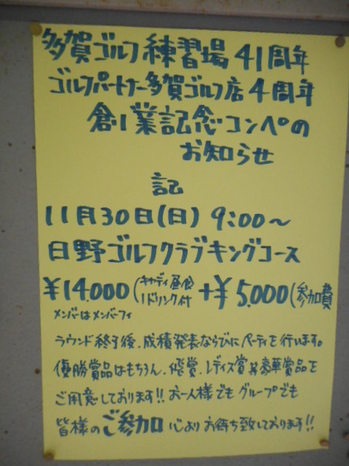 多賀ゴルフ練習場41周年
ゴルフパートナー多賀ゴルフ店4周年
創業記念コンペの
お知らせ
記
11月30日(日) 9:00〜
日野ゴルフクラブキングコース
¥14.000(キャディ昼食 1ドリンク付)+¥5.000(参加費)
メンバーはメンバーフィ
ラウンド終了後、成積発表ならびにパーティを行います。
優勝賞品はもちろん、飛賞、レディス賞等豪華賞品を
ご用意しております!!お一人様でもグループでも
皆様のご参加心よりお待ち致しております!!